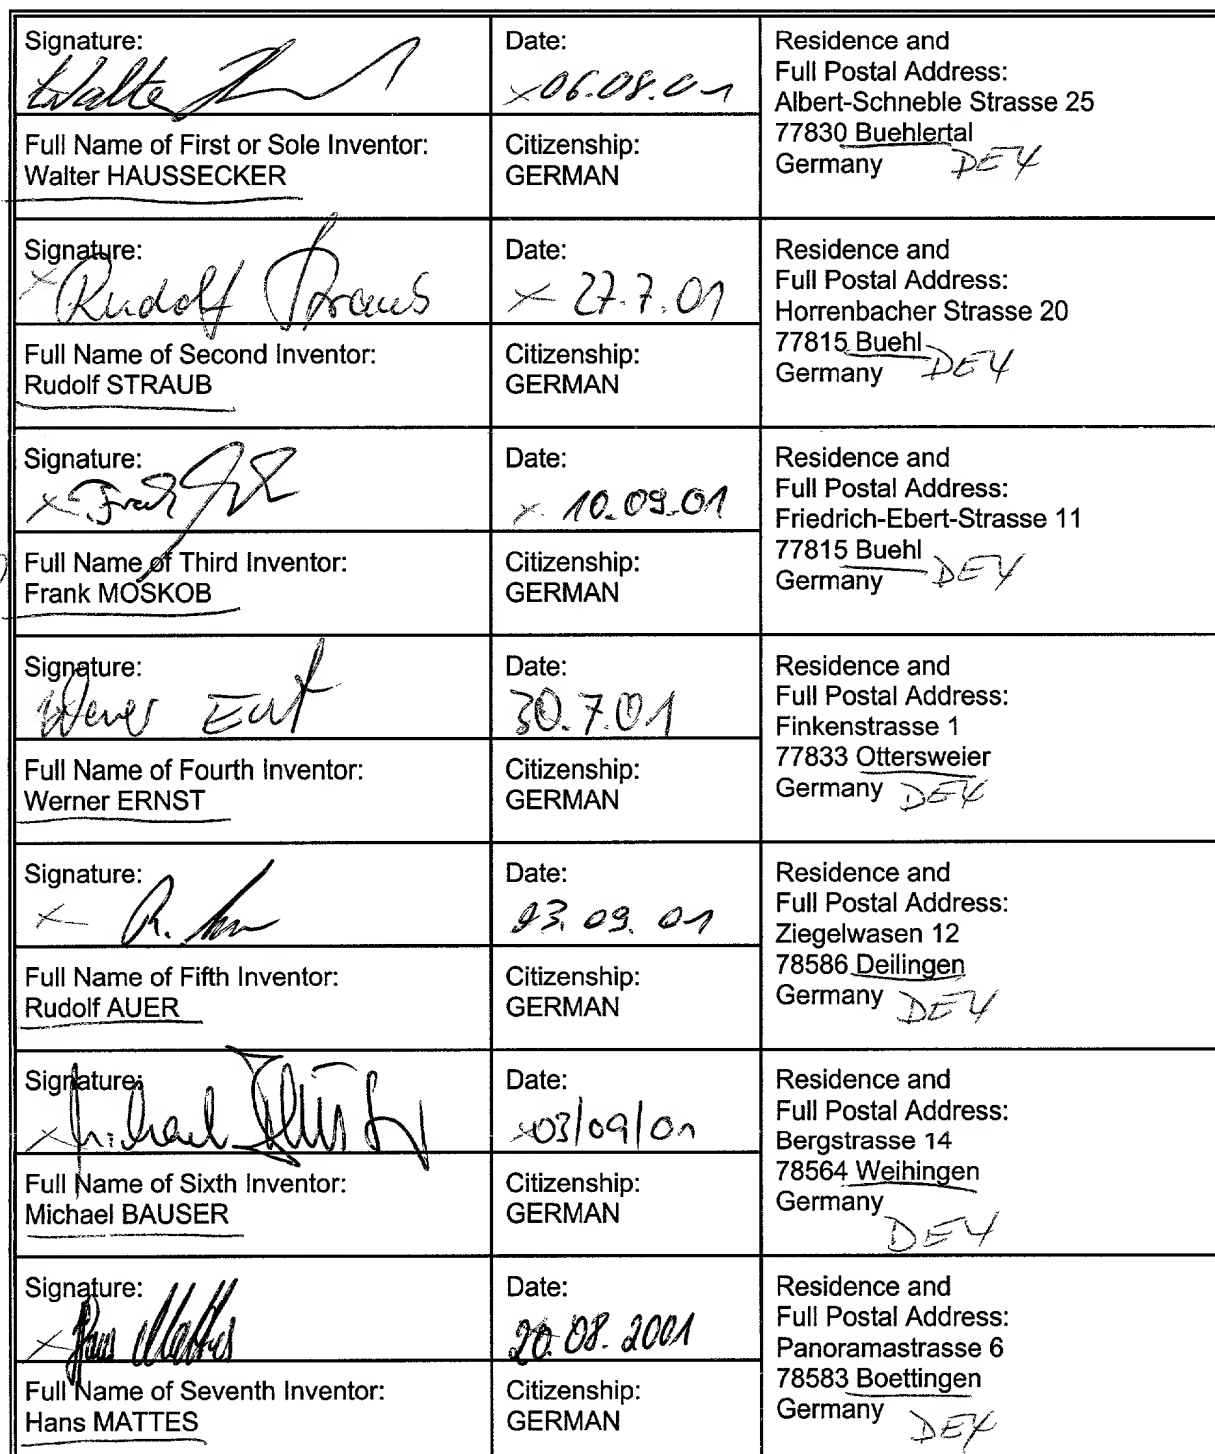 Signature:
Walter
Date:
x 06.08.01
Residence and
Full Postal Address:
Albert-Schneble Strasse 25
77830 Buehlertal
Germany DEX
Full Name of First or Sole Inventor:
Walter HAUSSECKER
Citizenship:
GERMAN
Signature:
x Rudolf Straub
Date:
x 27.7.01
Residence and
Full Postal Address:
Horrenbacher Strasse 20
77815 Buehl
Germany DEX
Full Name of Second Inventor:
Rudolf STRAUB
Citizenship:
GERMAN
Signature:
x Frank
Date:
x 10.09.01
Residence and
Full Postal Address:
Friedrich-Ebert-Strasse 11
77815 Buehl
Germany DEX
Full Name of Third Inventor:
Frank MOSKOB
Citizenship:
GERMAN
Signature:
Werner Ernst
Date:
30.7.01
Residence and
Full Postal Address:
Finkenstrasse 1
77833 Ottersweier
Germany DEX
Full Name of Fourth Inventor:
Werner ERNST
Citizenship:
GERMAN
Signature:
x R.
Date:
09. 01
Residence and
Full Postal Address:
Ziegelwasen 12
78586 Deilingen
Germany DEX
Full Name of Fifth Inventor:
Rudolf AUER
Citizenship:
GERMAN
Signature:
x Michael
Date:
x 03/09/01
Residence and
Full Postal Address:
Bergstrasse 14
78564 Weihingen
Germany
DEX
Full Name of Sixth Inventor:
Michael BAUSER
Citizenship:
GERMAN
Signature:
x Hans Mattes
Date:
20.08.2001
Residence and
Full Postal Address:
Panoramastrasse 6
78583 Boettingen
Germany DEX
Full Name of Seventh Inventor:
Hans MATTES
Citizenship:
GERMAN